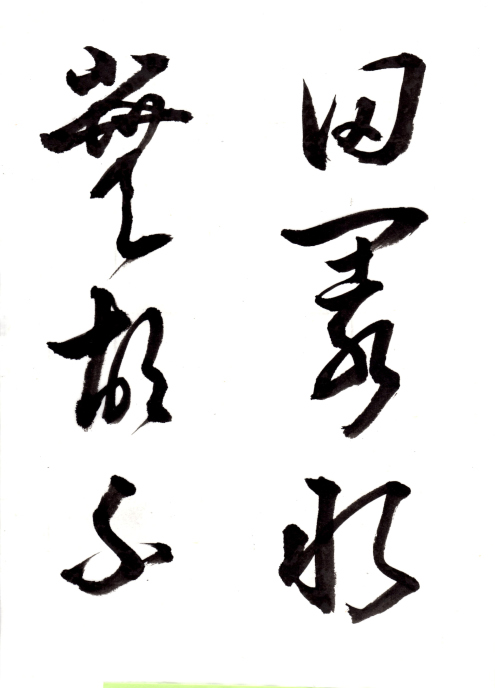 田園將
蕪胡不